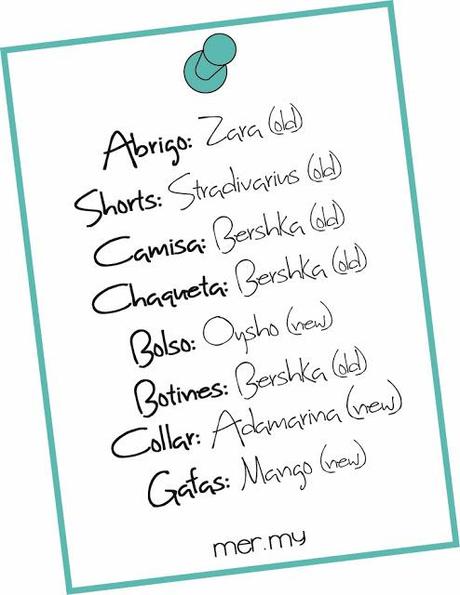 Abrigo: Zara (old)
Shorts: Stradivarius (old)
Camisa: Bershka (old)
Chaqueta: Bershka (old)
Bolso: Oysho (new)
Botines: Bershka (old)
Collar: Adamarina (new)
Gafas: Mango (new)
mer.my